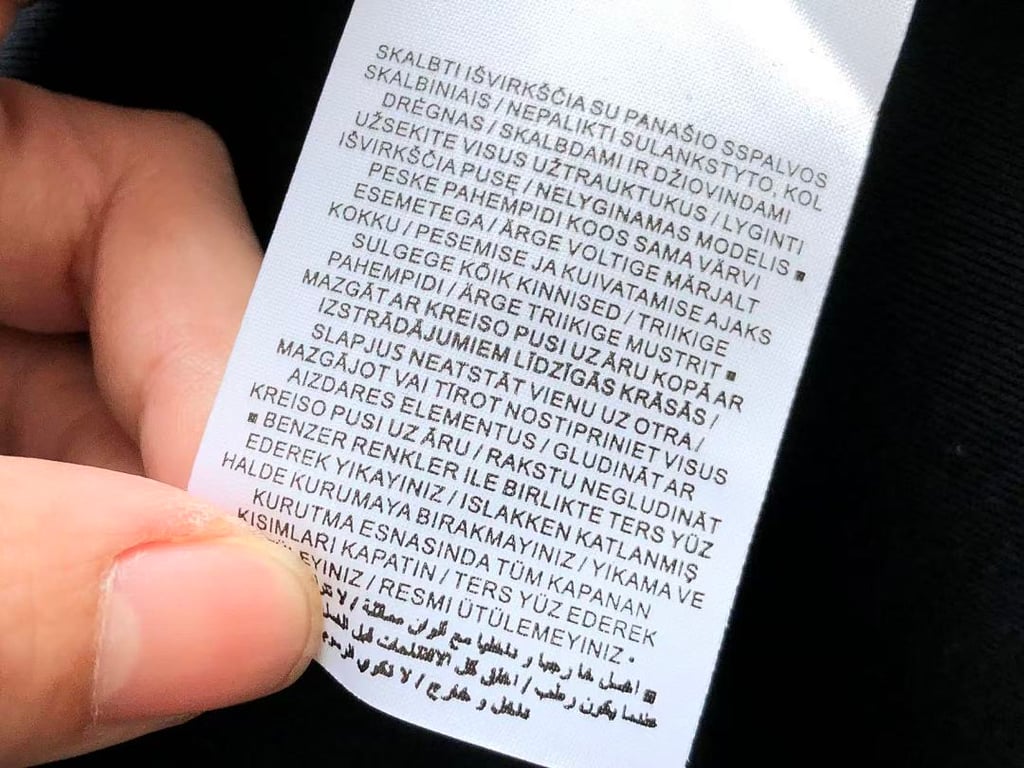 SKALBTI IŠVIRKŠČIA SU PANAŠIO SSPALVOS
SKALBINIAIS / NEPALIKTI SULANKSTYTO, KOL
DRĖGNAS / SKALBDAMI IR DŽIOVINDAMI
UŽSEKITE VISUS UŽTRAUKTUKUS / LYGINTI
IŠVIRKŠČIA PUSĘ / NELYGINAMAS MODELIS ■
PESKE PAHEMPIDI KOOS SAMA VÄRVI
ESEMETEGA / ÄRGE VOLTIGE MÄRJALT
KOKKU / PESEMISE JA KUIVATAMISE AJAKS
SULGEGE KÕIK KINNISED / TRIIKIGE
PAHEMPIDI / ÄRGE TRIIKIGE MUSTRIT ■
MAZGĀT AR KREISO PUSI UZ ĀRU KOPĀ AR
IZSTRĀDĀJUMIEM LĪDZĪGĀS KRĀSĀS /
SLAPJUS NEATSTĀT VIENU UZ OTRA /
MAZGĀJOT VAI TĪROT NOSTIPRINIET VISUS
AIZDARES ELEMENTUS / GLUDINĀT AR
KREISO PUSI UZ ĀRU / RAKSTU NEGLUDINĀT
■ BENZER RENKLER ILE BIRLIKTE TERS YÜZ
EDEREK YIKAYINIZ / ISLAKKEN KATLANMIŞ
HALDE KURUMAYA BIRAKMAYINIZ / YIKAMA VE
KURUTMA ESNASINDA TÜM KAPANAN
KISIMLARI KAPATIN / TERS YÜZ EDEREK
/ RESMI ÜTÜLEMEYINIZ ▪
■ اغسل و مع ألوان مماثلة / لا
عندما يكون رطب / اغلق كل قبل
داخل و خارج / لا تكوي